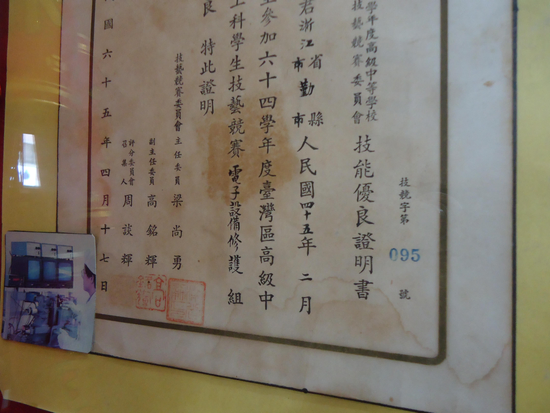 技競字第
095
號
學年度高級中等學校
技藝競賽委員會
技能優良證明書
君浙江省
市勤縣
市
人民國四十五年二月
參加六十四學年度臺灣區高級中
工科學生技藝競賽電子設備修護組
良特此證明
技藝競賽委員會主任委員梁尚勇
副主任委員高銘輝
評分委員會
召集人
周談輝
國六十五年四月十七日